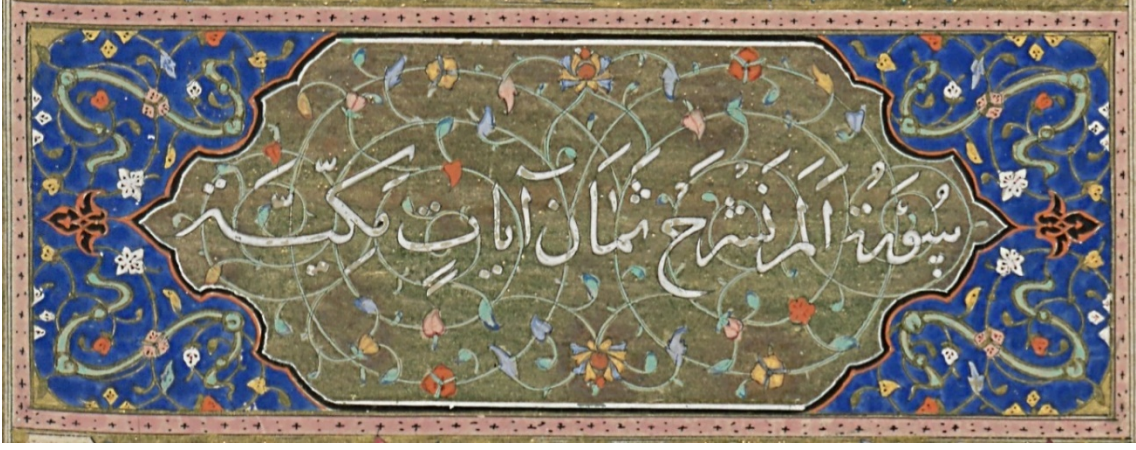 سُورَةُ اَلَمْ نَشْرَحْ ثَمَانَ آيَاتٍ مَكِّيَّة